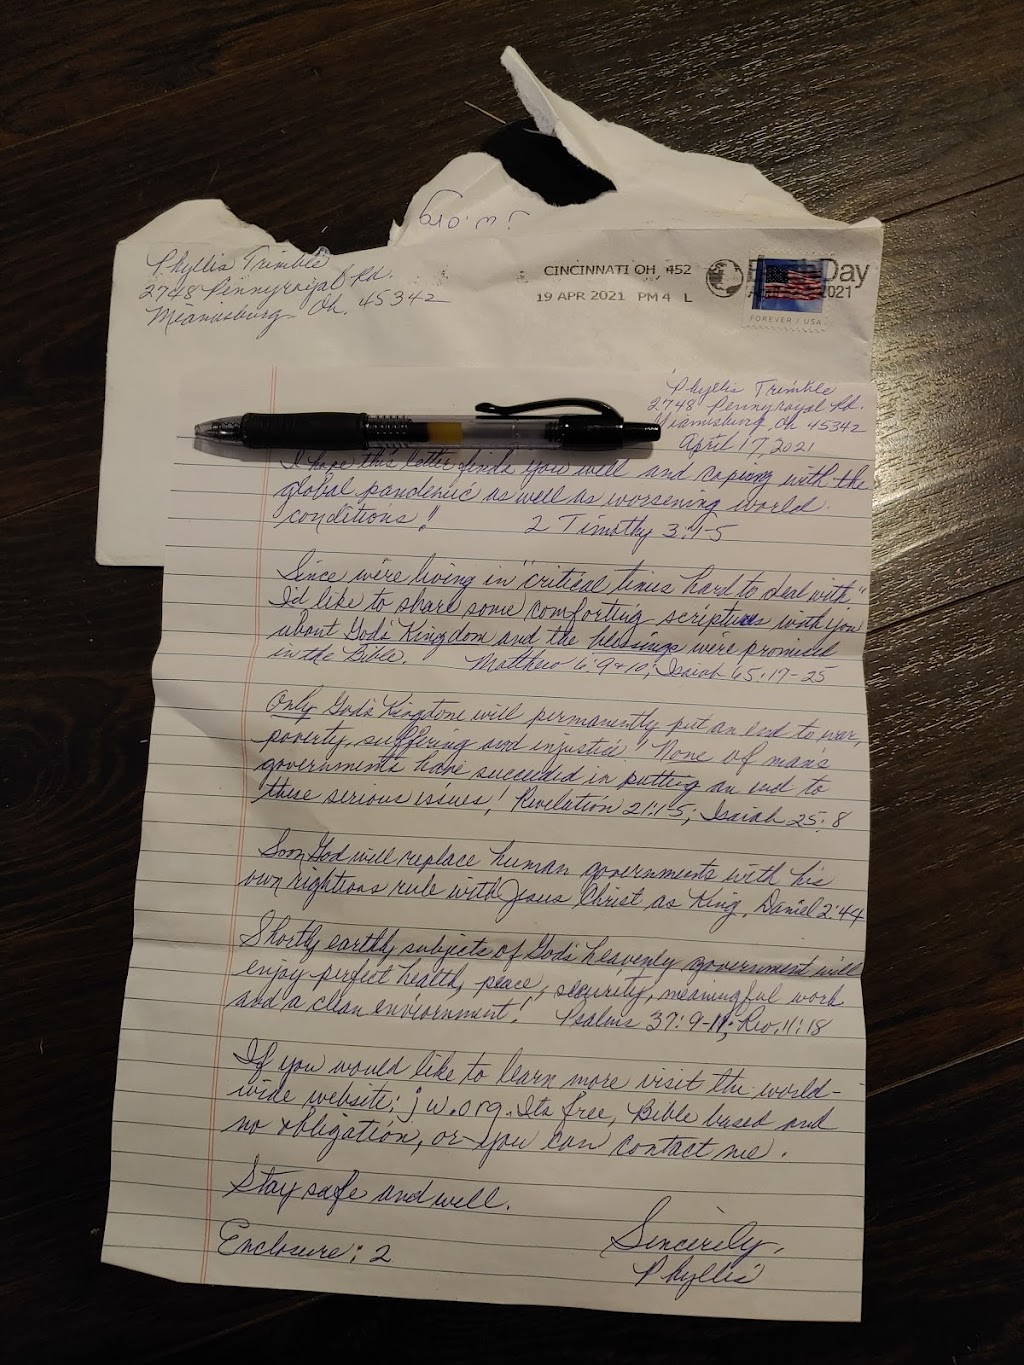 jw.org
Phyllis Trimble
2748 Pennyroyal Rd.
Miamisburg Oh. 45342
CINCINNATI OH 452
19 APR 2021 PM 4 L
Day
2021
FOREVER / USA
Phyllis Trimble
2748 Pennyroyal Rd.
Miamisburg, Oh 45342
April 17, 2021
I hope this letter finds you well and coping with the
global pandemic as well as worsening world
conditions! 2 Timothy 3:1-5
Since we're living in "critical times hard to deal with,"
I'd like to share some comforting scriptures with you
about God's Kingdom and the blessings we're promised
in the Bible. Matthew 6:9 & 10; Isaiah 65:17-25
Only God's Kingdone will permanently put an end to war,
poverty, suffering and injustice! None of man's
governments have succeeded in putting an end to
these serious issues! Revelation 21:1-5; Isaiah 25:8
Soon God will replace human governments with his
own rightious rule with Jesus Christ as King. Daniel 2:44
Shortly earthly subjects of God's heavenly government will
enjoy perfect health, peace, security, meaningful work
and a clean enviornment! Psalms 37:9-11; Rev. 11:18
If you would like to learn more visit the world-
wide website: jw.org. Its free, Bible based and
no obligation, or you can contact me.
Stay safe and well.
Sincerily,
Enclosure: 2
Phyllis